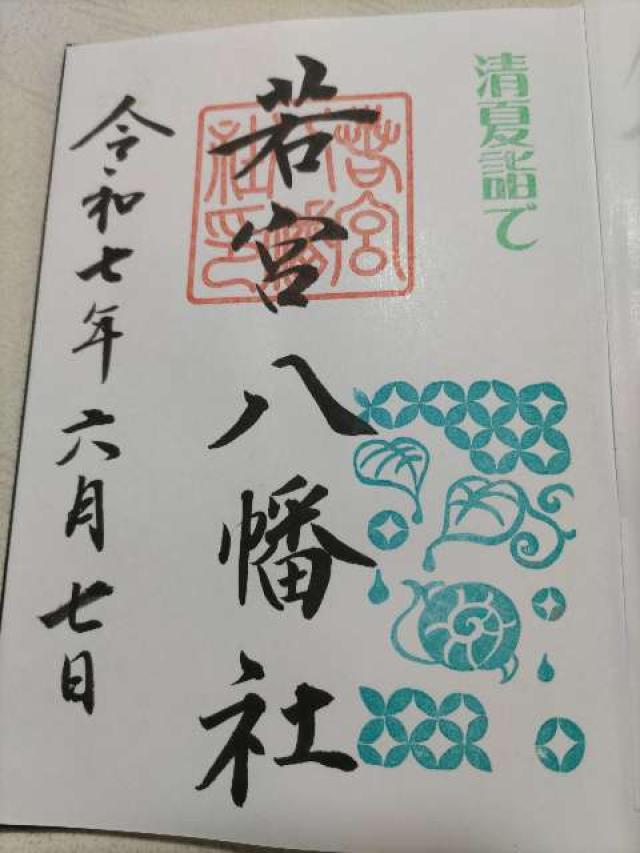 清夏詣で
若宮八幡社
若宮八幡社印
令和七年六月七日